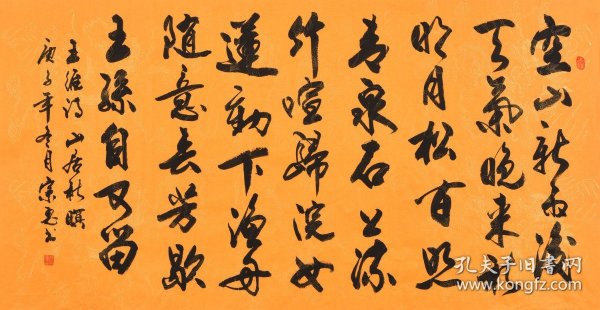 空山新雨後
天氣晚來秋
明月松間照
清泉石上流
竹喧歸浣女
蓮動下漁舟
隨意春芳歇
王孫自可留
王維詩 山居秋暝
庚子年冬月宗
孔夫子旧书网
www.kongfz.com